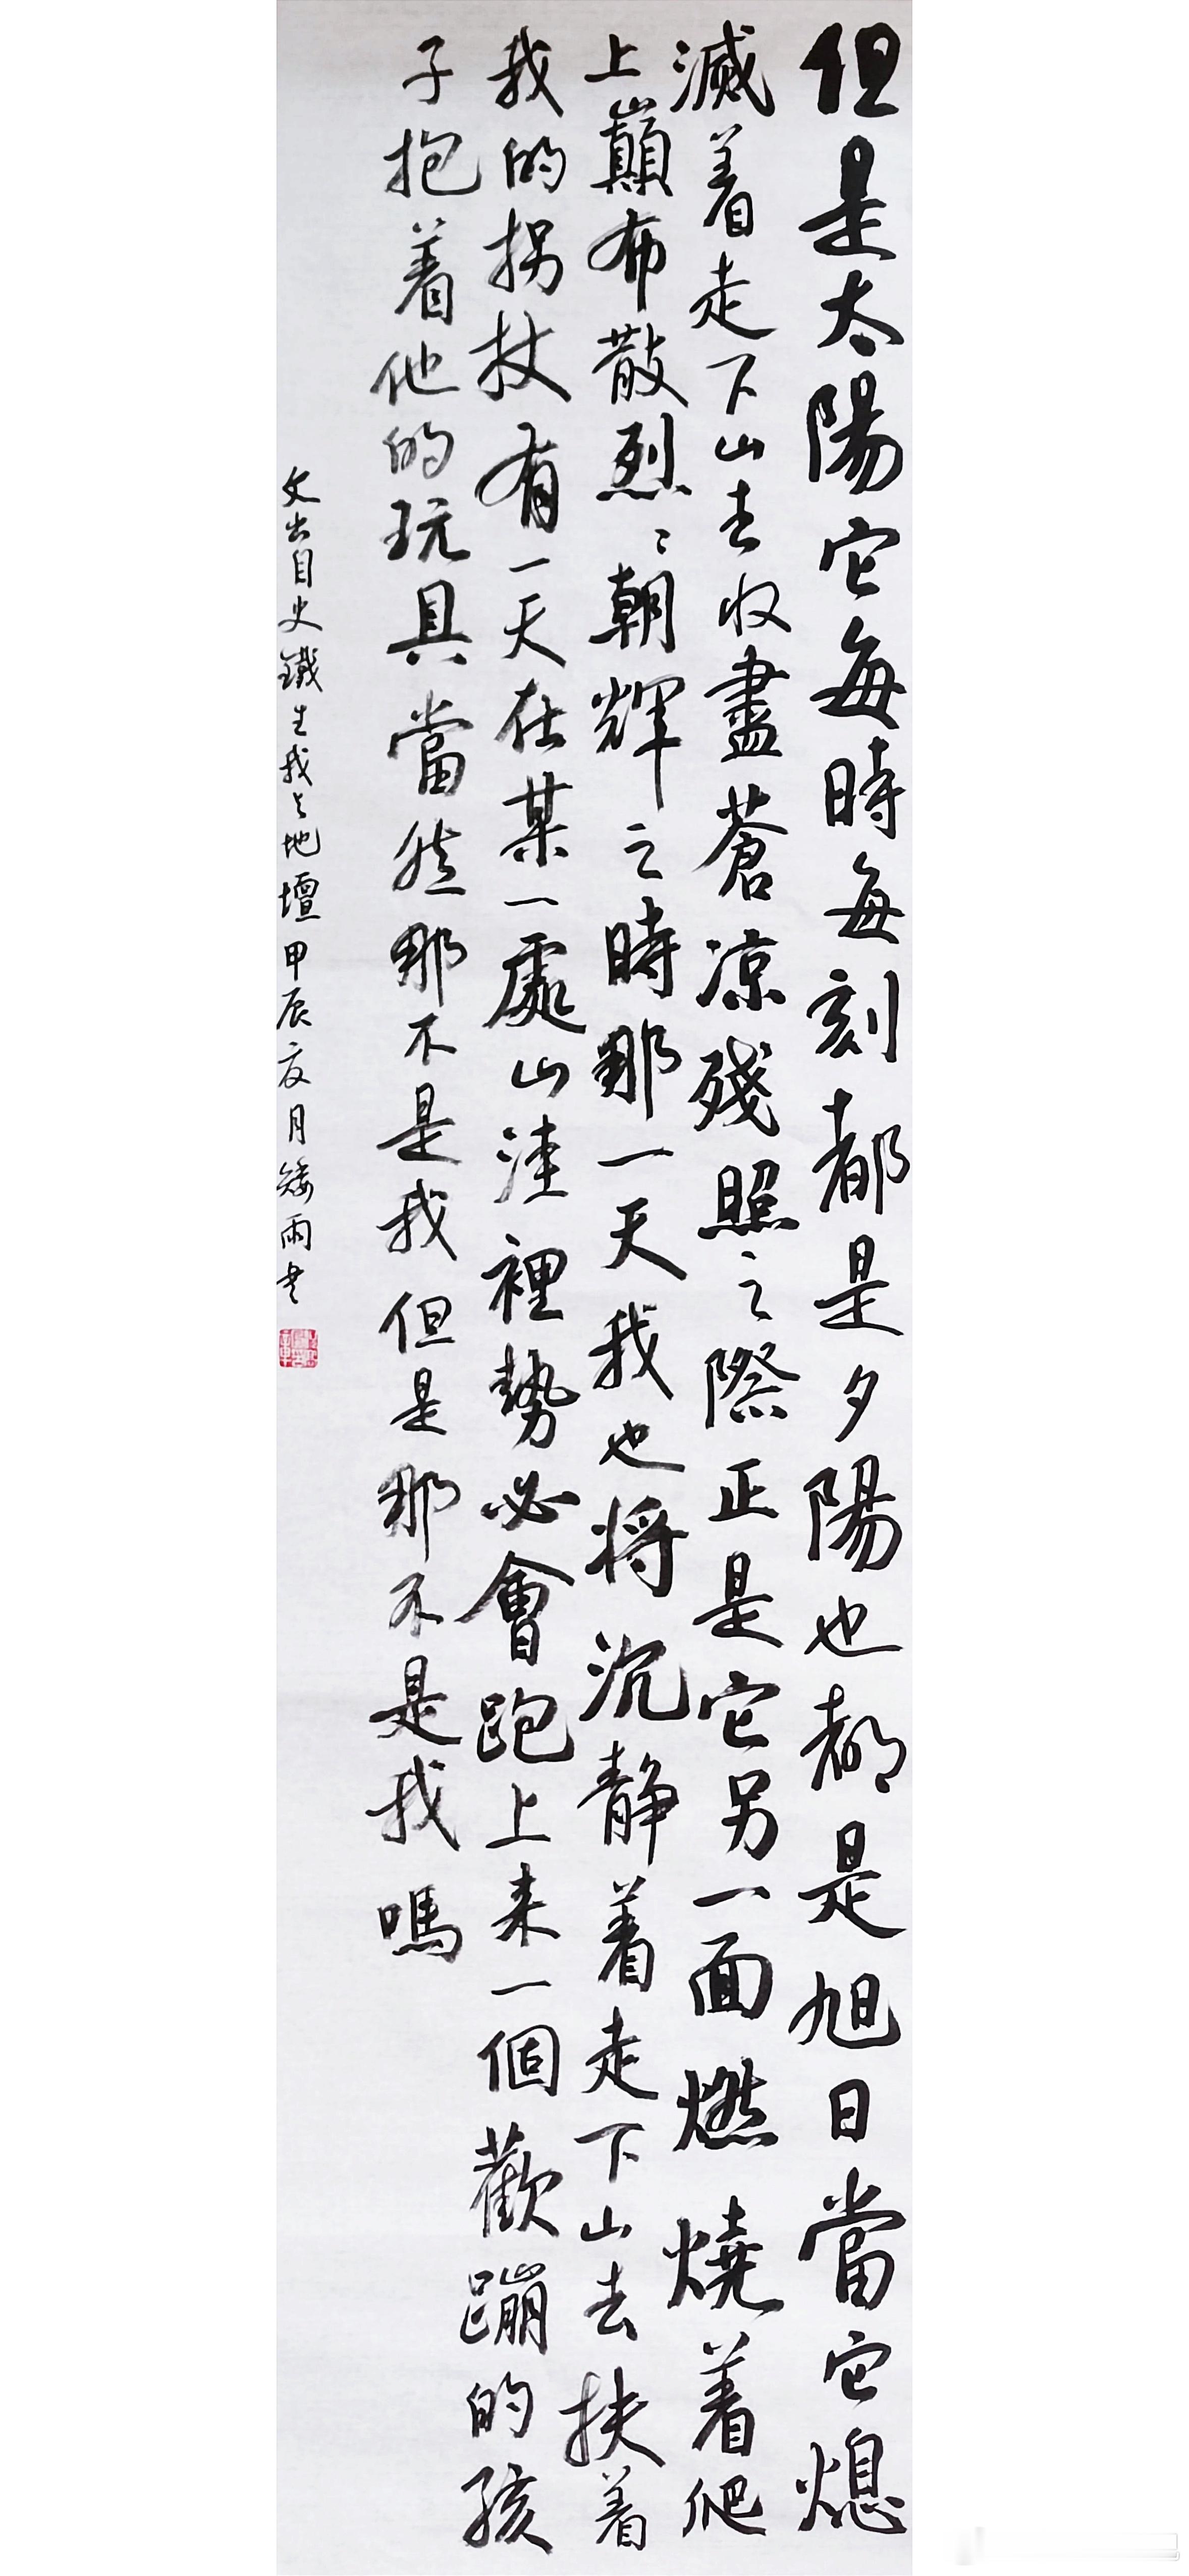 但是太陽它每時每刻都是夕陽也都是旭日當它熄
滅着走下山去收盡蒼凉殘照之際正是它另一面燃燒着爬
上巔布散烈〻朝輝之時那一天我也將沉静着走下山去扶着
我的拐杖有一天在某一處山洼裡勢必會跑上来一個歡蹦的孩
子抱着他的玩具當然那不是我但是那不是我嗎
文出自史鐵生我与地壇甲辰夏月矮雨書